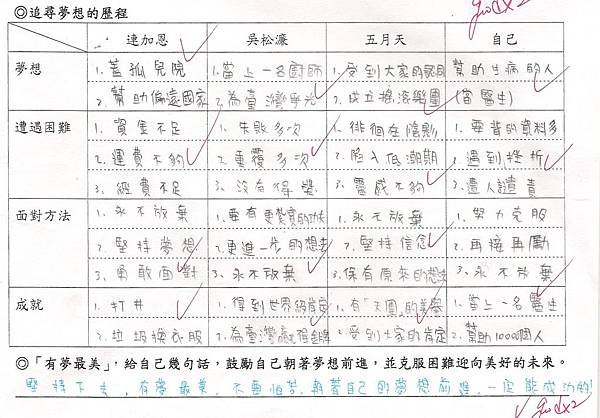 ◎追尋夢想的歷程
good x2
連加恩 吳松濂 五月天 自己
夢想 1.蓋孤兒院 1.當上一名廚師 1.受到大家的認同 幫助生病的人
2.幫助偏遠國家 2.為臺灣爭光 2.成立搖滾樂團 (當醫生)
遭遇困難 1.資金不足 1.失敗多次 1.徘徊在陰影 1.要背的資料多
2.運費不夠 2.重覆多次 2.陷入低潮期 2.遇到挫折
3.經費不足 3.沒有得獎 3.靈感不夠 3.遭人譴責
面對方法 1.永不放棄 1.要有更紮實的功夫 1.永不放棄 1.努力克服
2.堅持夢想 2.更進一步的想法 2.堅持信念 2.再接再勵
3.勇敢面對 3.永不放棄 3.保有原來的想法 3.永不放棄
成就 1.打井 1.得到世界級肯定 1.有「天團」的美譽 1.當上一名醫生
2.垃圾換衣服 2.為臺灣贏得金牌 2.受到大家的肯定 2.幫助10000個人
◎「有夢最美」,給自己幾句話,鼓勵自己朝著夢想前進,並克服困難迎向美好的未來。
堅持下去,有夢最美,不要怕苦,朝著自己的夢想前進,一定能成功的!
good x2